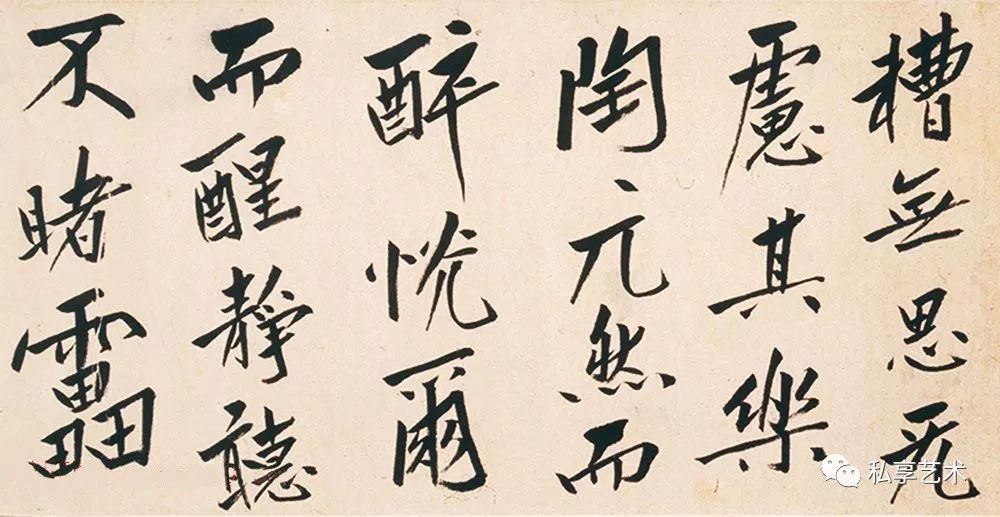 槽無思无
慮其樂
陶〻兀然而
醉恍爾
而醒靜聽
不睹靁
私享艺术